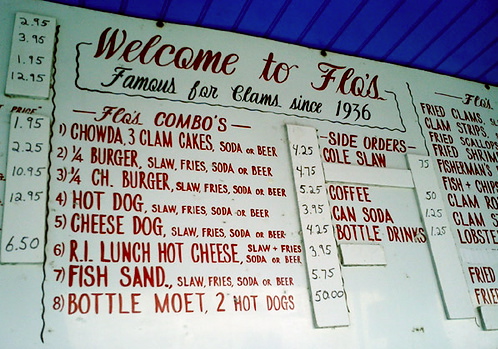 2.95
3.95
1.95
12.95
PRICE
1.95
2.25
10.95
12.95
6.50
Welcome to Flo's
Famous for Clams since 1936
Flo's COMBO'S
1) CHOWDA, 3 CLAM CAKES, SODA or BEER 4.25
2) ¼ BURGER, SLAW, FRIES, SODA or BEER 4.75
3) ¼ CH. BURGER, SLAW, FRIES, SODA or BEER 5.25
4) HOT DOG, SLAW, FRIES, SODA or BEER 3.95
5) CHEESE DOG, SLAW, FRIES, SODA or BEER 4.25
6) R.I. LUNCH HOT CHEESE, SLAW + FRIES 3.95
7) FISH SAND., SLAW, FRIES, SODA or BEER 5.75
8) BOTTLE MOET, 2 HOT DOGS 50.00
SIDE ORDERS
COLE SLAW 75
COFFEE 50
CAN SODA 1.25
BOTTLE DRINKS 1.25
Flo's
FRIED CLAMS
CLAM STRIPS
FRIED SCALLOPS
FRIED SHRIM
FISHERMAN'S
FISH + CHIP
CLAM RO
CLAM S
LOBSTE
FRIED
FRIED